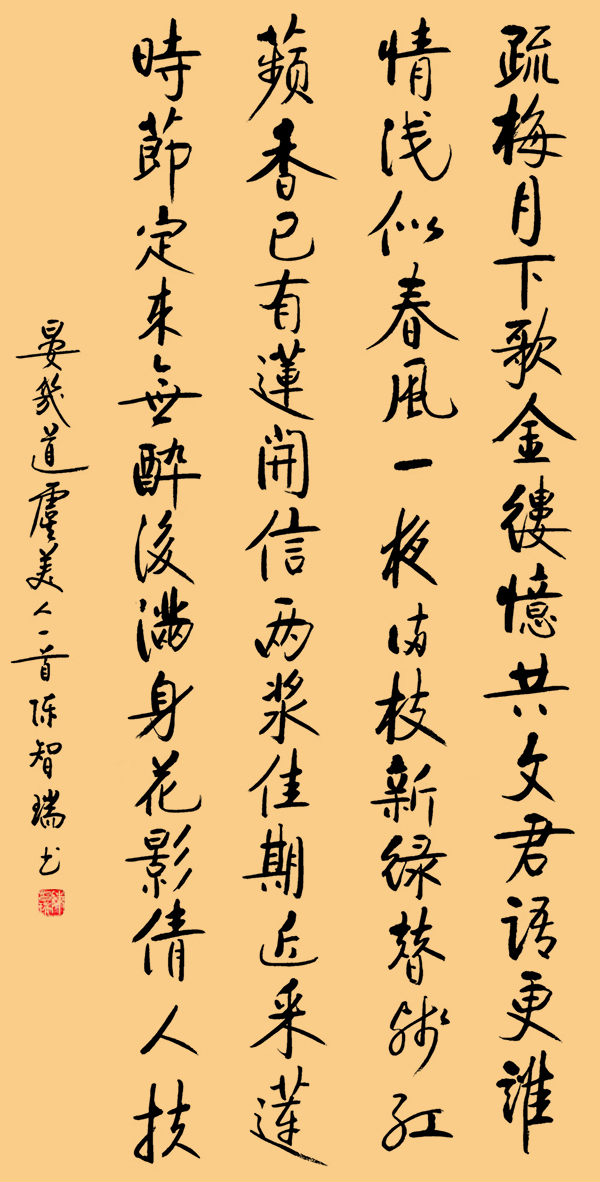 疏梅月下歌金縷憶共文君語更誰
情浅似春風一夜满枝新緑替残红
蘋香已有蓮開信两桨佳期近采蓮
時節定来無醉後满身花影倩人扶
晏幾道虞美人一首陈智瑞书